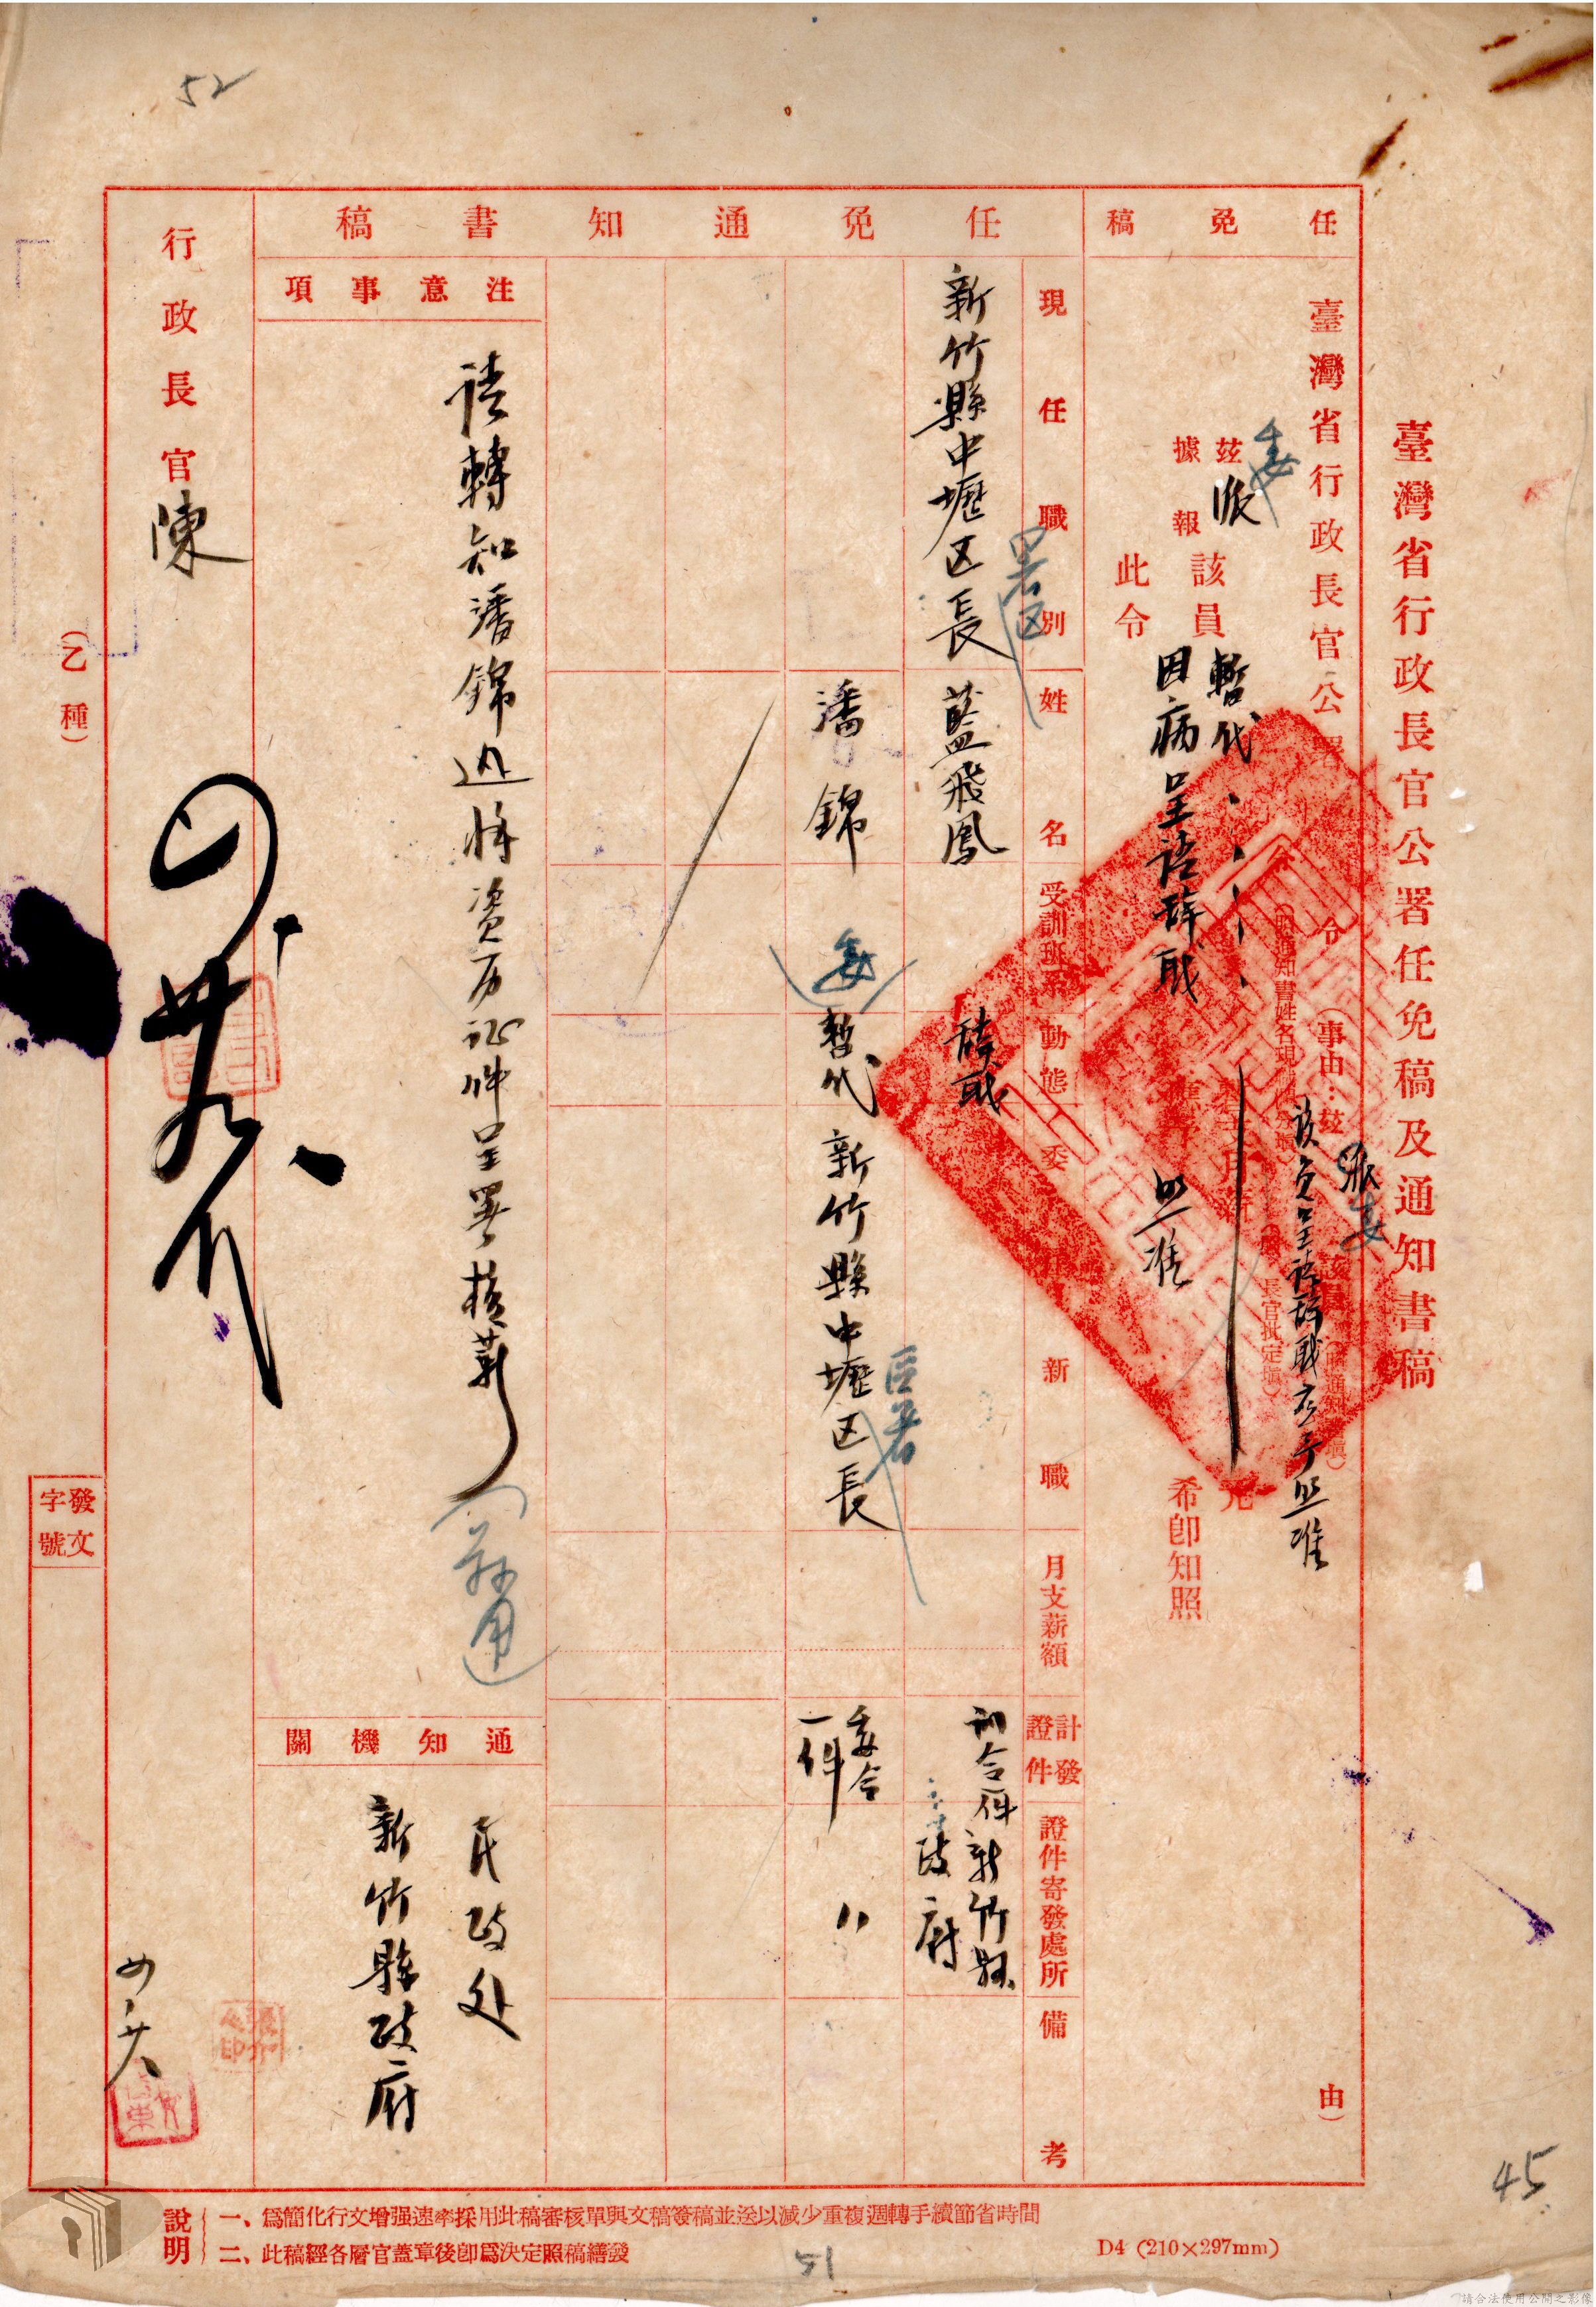 52
臺灣省行政長官公署任免稿及通知書稿
任免稿
臺灣省行政長官公署
令
(事由:茲
派委
該員呈請辭職應予照准
由)
茲派
委
該員暫代
據報
因病呈請辭職
照准
此令
元
希卽知照
任免通知書稿
現任職別
姓名
受訓班系
動態
委新職
月支薪額
計發證件
證件寄發處所
備考
新竹縣中壢区長
署区
藍飛鳳
辭職
訓令一件
新竹縣政府
潘錦
委
暫代
新竹縣中壢区長
区署
委令一件
〃
注意事項
請轉知潘錦迅將資历证件呈署核薪
通知機關
民政处
新竹縣政府
行政長官
陳
(乙種)
發文字號
說明
一、爲簡化行文增强速率採用此稿審核單與文稿簽稿並送以減少重複週轉手續節省時間
二、此稿經各層官蓋章後卽爲決定照稿繕發
D4 (210×297mm)
51
45
請合法使用公開之影像